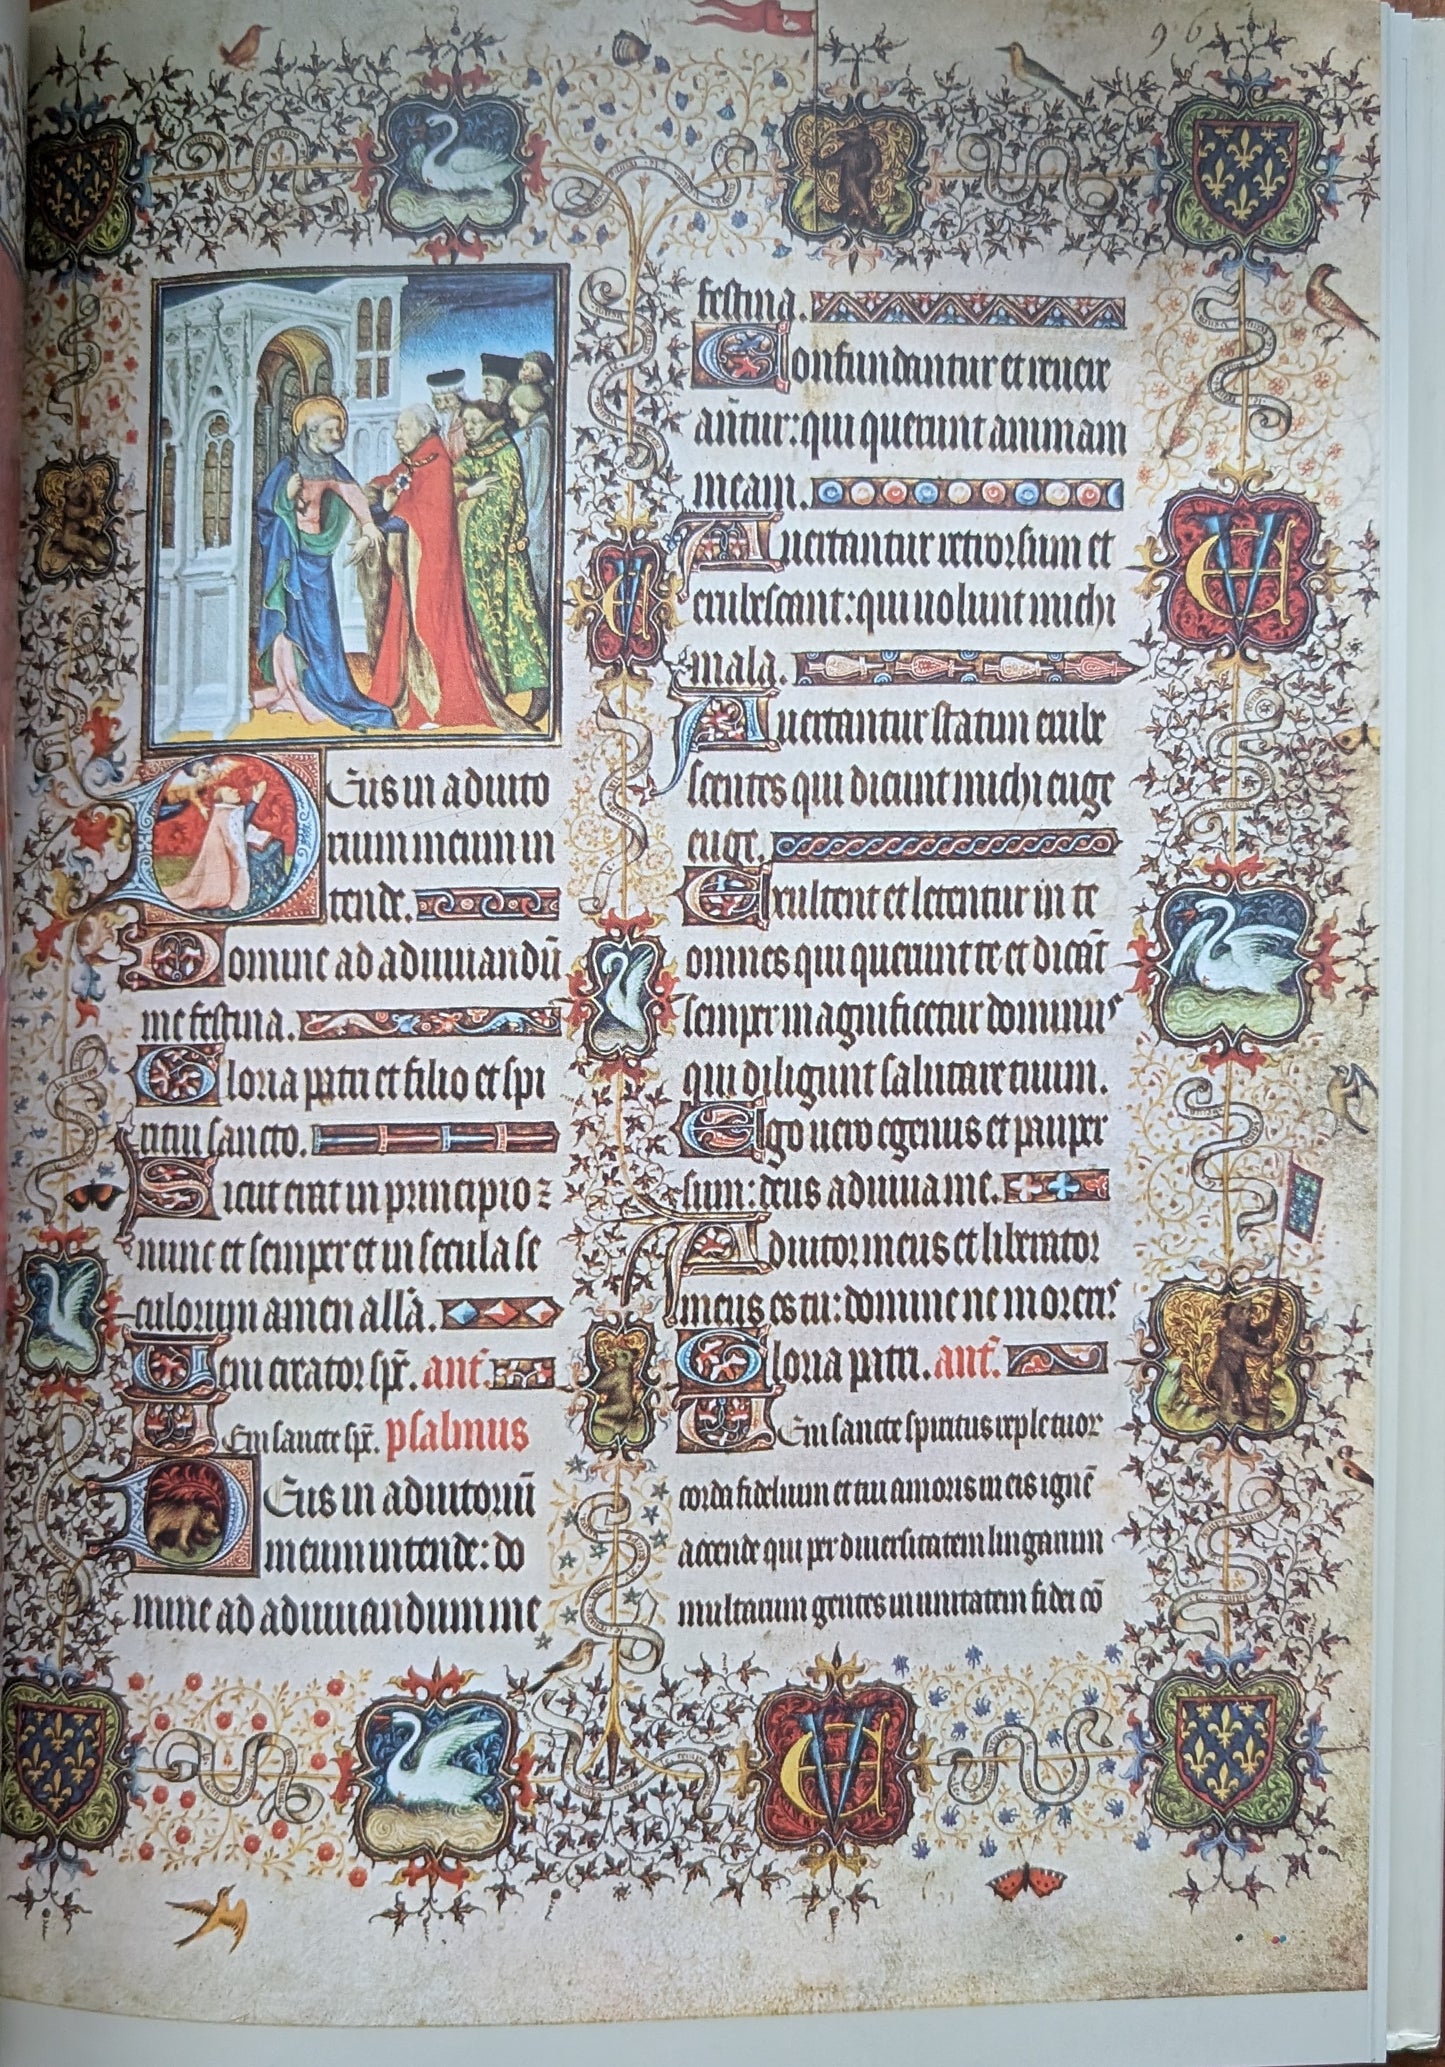 96
Deus in adiuto
rium meum in
tende.
Domine ad adiuuandū
me festina.
Gloria patri et filio et spi
ritui sancto.
Sicut erat in principio ꝛ
nunc et semper et in secula se
culorum amen all'a.
Veni creator spc̄. ant̄.
Veni sancte spc̄. psalmus
Deus in adiutoriū
meum intende: do
mine ad adiuuandum me
festina.
Confundantur et reuere
ant̄ur: qui querunt animam
meam.
Auertantur retrorsum et
erubescant: qui uolunt michi
mala.
Auertantur statim erube
scentes qui dicunt michi euge
euge.
Exultent et letentur in te
omnes qui querunt te et dicāt
semper magnificetur dominus
qui diligunt salutare tuum.
Ego uero egenus et pauper
sum: deus adiuua me.
Adiutor meus et liberator
meus es tu: domine ne moreris
Gloria patri. ant̄.
Veni sancte spiritus reple tuor
corda fidelium et tui amoris in eis ignē
accende qui per diuersitatem linguarum
multarum gentes in unitatem fidei cō